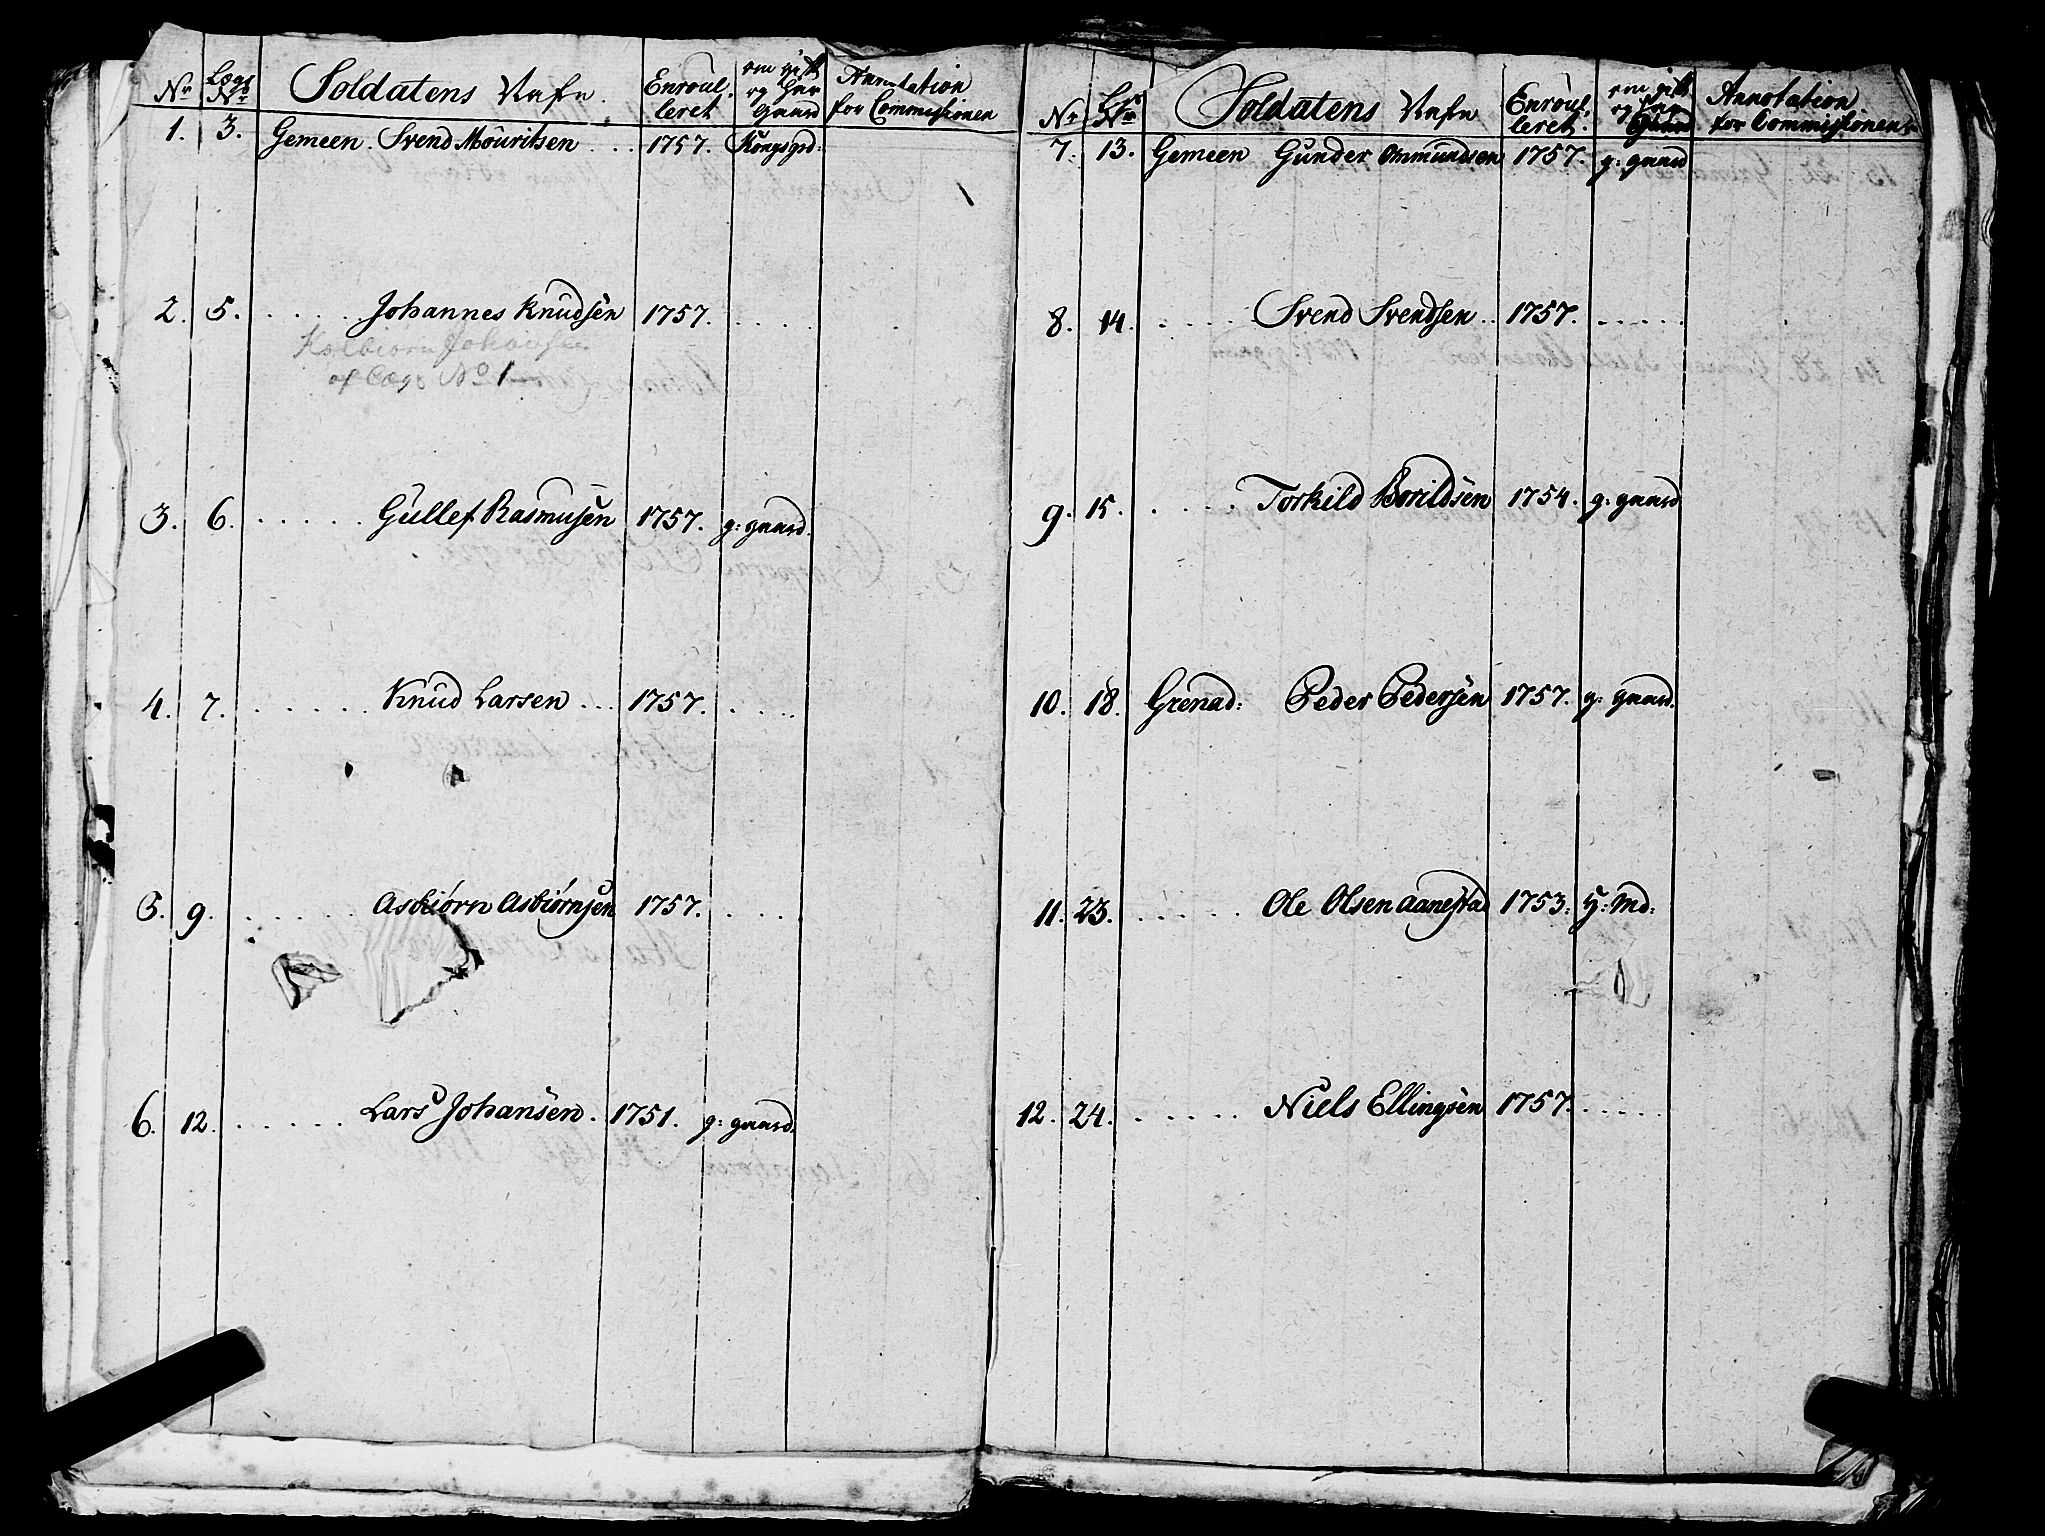 Nr Lægs Nr Soldatens Nafn. Enroul-leret om gift og har Gaard Annotation for Commissionen
1. 3. Gemeen. Svend Mouritsen . . 1757. Kongsgrd:
2. 5. . . . . . Johannes Knudsen 1757. . . . .
Kolbiorn Johansen
af Lægs No 1
3. 6. . . . . . Gullef Rasmusen 1757. g: gaard.
4. 7. . . . . . Knud Larsen . . . 1757. . . . .
5. 9. . . . . . Asbiørn Asbiørnsen 1757. . . . .
6. 12. . . . . . Lars Johansen. 1751. g: gaard.
Nr Nr Soldatens Nafn Enroul-leret. om gift og har Gaard Annotation for Commissionen
7. 13. Gemeen Gunder Ommundsen 1757. g: gaard
8. 14. . . . . Svend Svendsen . . 1757. . . . . .
9. 15. . . . . Torkild 1754. g: gaard
10. 18. Grenad: Peder Pedersen 1757. g: gaard.
11. 23. . . . . . Ole Olsen Aanestad 1753.
12. 24. . . . . . Niels Ellingsen 1757. . . . . .